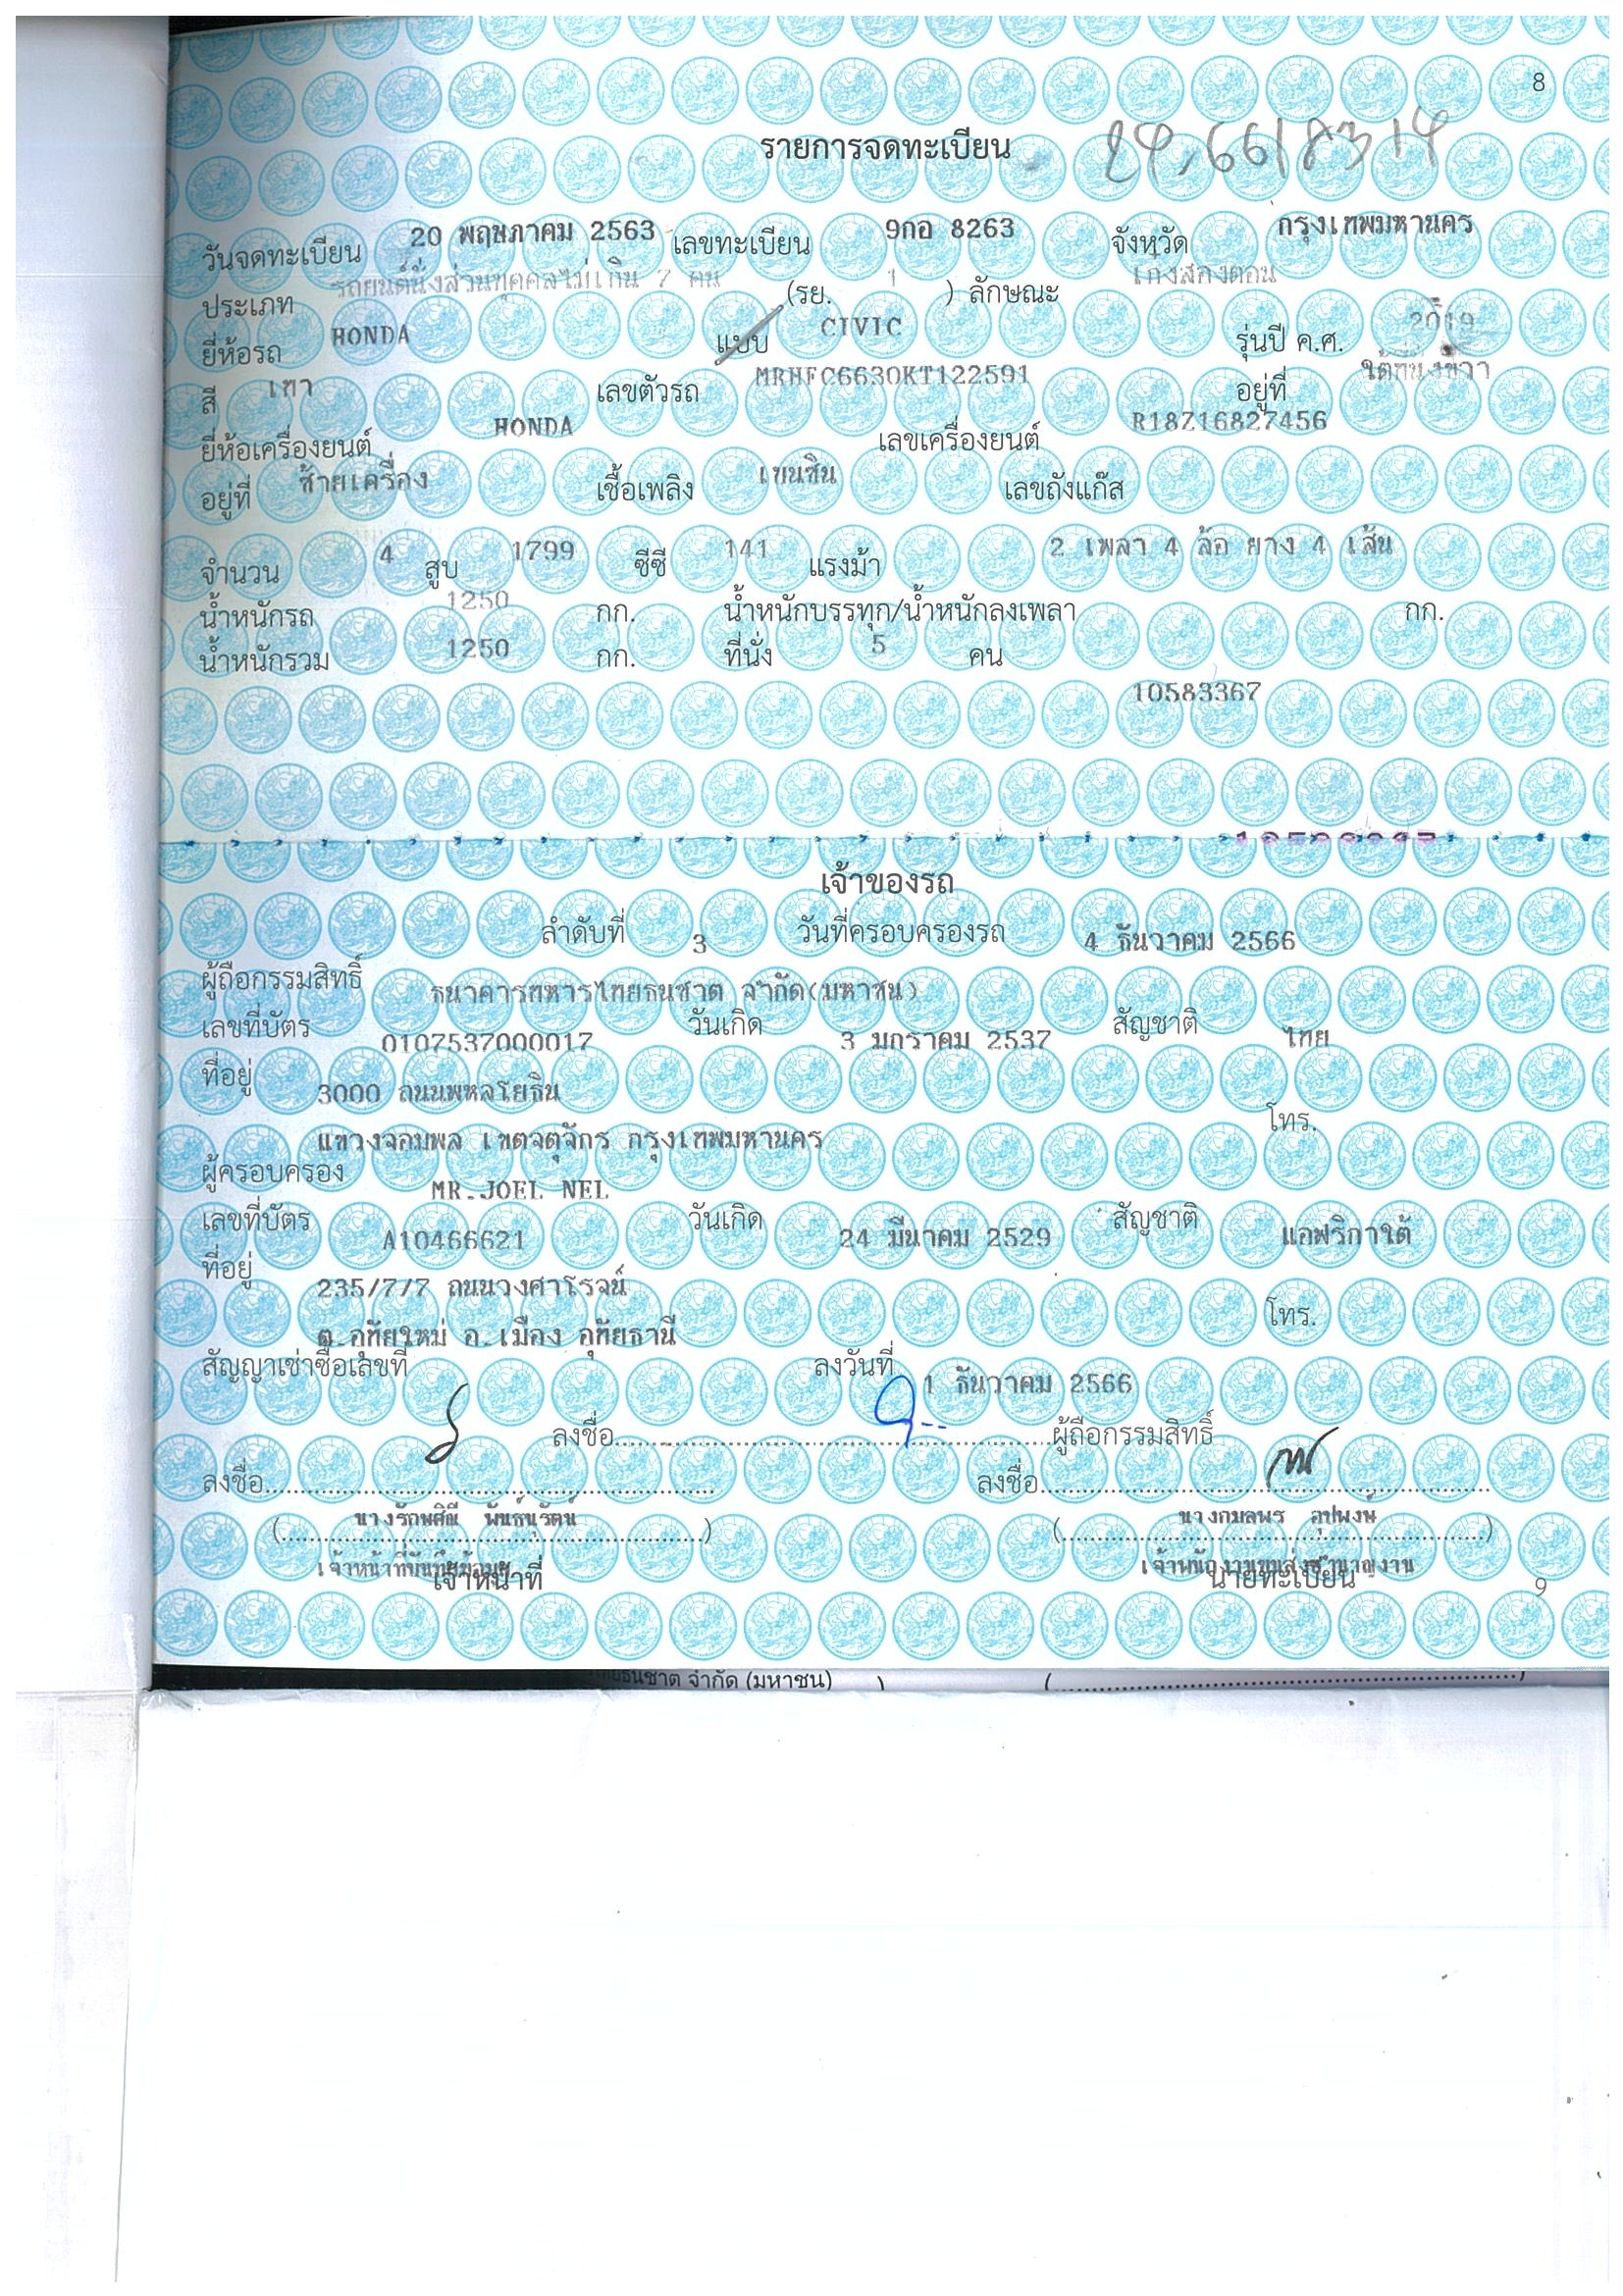 8
รายการจดทะเบียน
วันจดทะเบียน 20 พฤษภาคม 2563 เลขทะเบียน 9กอ 8263 จังหวัด กรุงเทพมหานคร
ประเภท รถยนต์นั่งส่วนบุคคลไม่เกิน 7 คน (รย. 1 ) ลักษณะ เก๋งสองตอน
ยี่ห้อรถ HONDA แบบ CIVIC รุ่นปี ค.ศ. 2019
สี เทา เลขตัวรถ MRHFC6630KT122591 อยู่ที่ ใต้ที่นั่งขวา
ยี่ห้อเครื่องยนต์ HONDA เลขเครื่องยนต์ R18Z16827456
อยู่ที่ ซ้ายเครื่อง เชื้อเพลิง เบนซิน เลขถังแก๊ส
จำนวน 4 สูบ 1799 ซีซี 141 แรงม้า 2 เพลา 4 ล้อ ยาง 4 เส้น
น้ำหนักรถ 1250 กก. น้ำหนักบรรทุก/น้ำหนักลงเพลา กก.
น้ำหนักรวม 1250 กก. ที่นั่ง 5 คน
10583367
เจ้าของรถ
ลำดับที่ 3 วันที่ครอบครองรถ 4 ธันวาคม 2566
ผู้ถือกรรมสิทธิ์ ธนาคารทหารไทยธนชาต จำกัด(มหาชน)
เลขที่บัตร 0107537000017 วันเกิด 3 มกราคม 2537 สัญชาติ ไทย
ที่อยู่ 3000 ถนนพหลโยธิน
แขวงจอมพล เขตจตุจักร กรุงเทพมหานคร โทร.
ผู้ครอบครอง MR.JOEL NEL
เลขที่บัตร A10466621 วันเกิด 24 มีนาคม 2529 สัญชาติ แอฟริกาใต้
ที่อยู่ 235/7/7 ถนนวงศาโรจน์
ต.อุทัยใหม่ อ.เมือง อุทัยธานี โทร.
สัญญาเช่าซื้อเลขที่ ลงวันที่ 1 ธันวาคม 2566
ลงชื่อ ผู้ถือกรรมสิทธิ์
ลงชื่อ ลงชื่อ
(นางรักษศิณี พันธ์นุรัตน์) (นางกมลพร อุปพงษ์)
เจ้าหน้าที่บันทึกข้อมูล เจ้าพนักงานขนส่งชำนาญงาน
เจ้าหน้าที่ นายทะเบียน
9
ธนชาต จำกัด (มหาชน) ) (